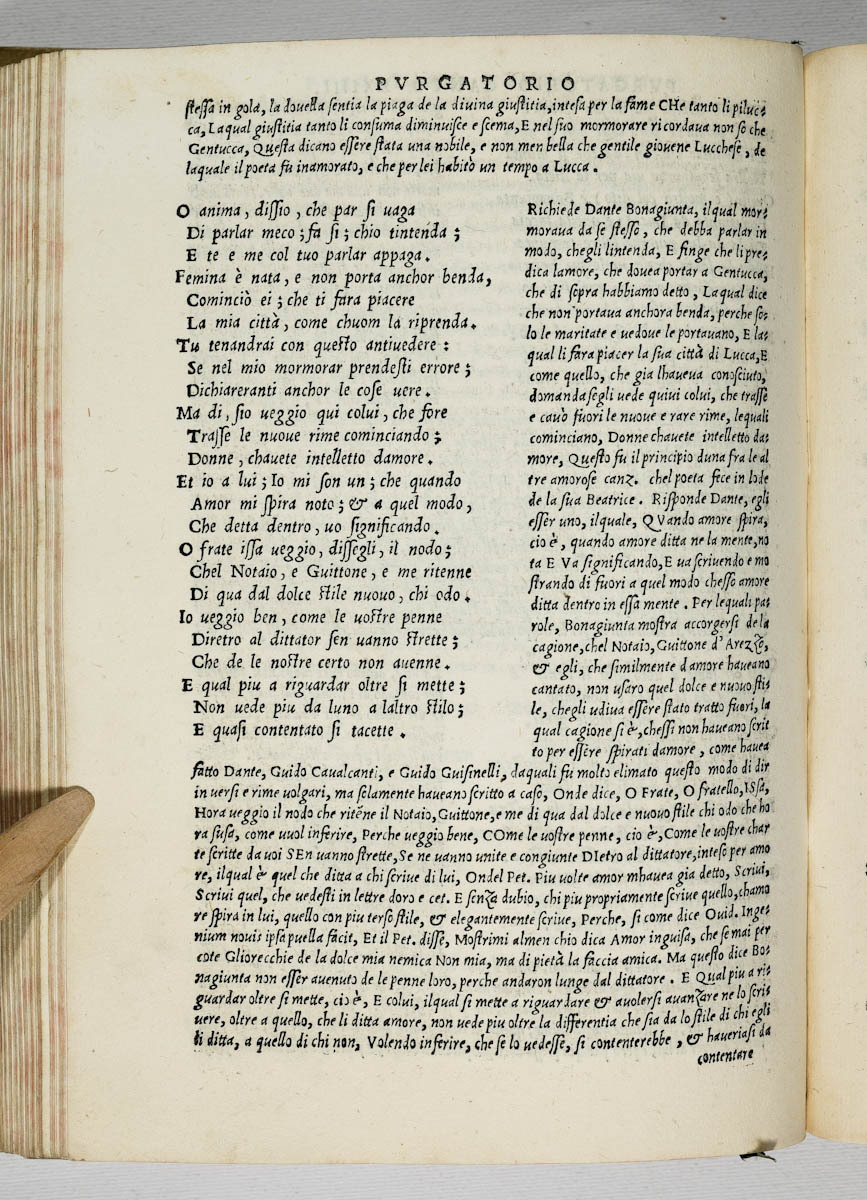 PVRGATORIO
stessa in gola, la douella sentia la piaga de la diuina giustitia, intesa per la fame CHe tanto li piluc-
ca, Laqual giustitia tanto li consuma diminuisce e scema, E nel suo mormorare ricordaua non so che
Gentucca, Questa dicano essere stata una nobile, e non men bella che gentile giouene Lucchese, de
laquale il poeta fù inamorato, e che per lei habitò un tempo a Lucca.
O anima, dissio, che par si uaga
Di parlar meco; fa si; chio tintenda;
E te e me col tuo parlar appaga.
Femina è nata, e non porta anchor benda,
Cominciò ei; che ti fara piacere
La mia città, come chuom la riprenda.
Tu tenandrai con questo antiuedere:
Se nel mio mormorar prendesti errore;
Dichiareranti anchor le cose uere.
Ma di, sio ueggio qui colui, che fore
Trasse le nuoue rime cominciando;
Donne, chauete intelletto damore.
Et io a lui; Io mi son un; che quando
Amor mi spira noto; & a quel modo,
Che detta dentro, uo significando.
O frate issa ueggio, dissegli, il nodo;
Chel Notaio, e Guittone, e me ritenne
Di qua dal dolce stile nuouo, chi odo.
Io ueggio ben, come le uostre penne
Diretro al dittator sen uanno strette;
Che de le nostre certo non auenne.
E qual piu a riguardar oltre si mette;
Non uede piu da luno a laltro stilo;
E quasi contentato si tacette.
Richiede Dante Bonagiunta, ilqual mor-
moraua da se stesso, che debba parlar in
modo, chegli lintenda, E finge che li pre-
dica lamore, che douea portar a Gentucca,
che di sopra habbiamo detto, Laqual dice
che non portaua anchora benda, perche so-
lo le maritate e uedoue le portauano, E la-
qual li fara piacer la sua città di Lucca, E
come quello, che gia lhaueua conosciuto,
domanda segli uede quiui colui, che trasse
e cauò fuori le nuoue e rare rime, lequali
cominciano, Donne chauete intelletto da-
more, Questo fù il principio duna fra le al
tre amorose canz. chel poeta fece in lode
de la sua Beatrice. Risponde Dante, egli
esser uno, ilquale, QVando amore spira,
cio è, quando amore ditta ne la mente, no
ta E Va significando, E ua scriuendo e mo
strando di fuori a quel modo chesso amore
ditta dentro in essa mente. Per lequali pa-
role, Bonagiunta mostra accorgersi de la
cagione, chel Notaio, Guittone d'Arezzo,
& egli, che similmente damore haueano
cantato, non usaro quel dolce e nuouo sti-
le, chegli udiua essere stato tratto fuori, la
qual cagione si è, chessi non haueano scrit
to per essere spirati damore, come hauea
fatto Dante, Guido Caualcanti, e Guido Guisinelli, daquali fù molto elimato questo modo di dir
in uersi e rime uolgari, ma solamente haueano scritto a caso, Onde dice, O Frate, O fratello, ISsa,
Hora ueggio il nodo che ritēne il Notaio, Guittone, e me di qua dal dolce e nuouo stile chi odo che ho
ra susa, come uuol inferire, Perche ueggio bene, COme le uostre penne, cio è, Come le uostre char
te scritte da uoi SEn uanno strette, Se ne uanno unite e congiunte DIetro al dittatore, inteso per amo
re, ilqual è quel che ditta a chi scriue di lui, Ondel Pet. Piu uolte amor mhauea gia detto, Scriui,
Scriui quel, che uedesti in lettre doro e cet. E senza dubio, chi piu propriamente scriue quello, chamo
re spira in lui, quello con piu terso stile, & elegantemente scriue, Perche, si come dice Ouid. Inge-
nium nouis ipsa puella facit, Et il Pet. disse, Mostrimi almen chio dica Amor inguisa, che se mai per
cote Gliorecchie de la dolce mia nemica Non mia, ma di pietà la faccia amica. Ma questo dice Bo-
nagiunta non esser auenuto de le penne loro, perche andaron lunge dal dittatore. E Qual piu a ri-
guardar oltre si mette, cio è, E colui, ilqual si mette a riguardare & auolersi auanzare ne lo scri-
uere, oltre a quello, che li ditta amore, non uede piu oltre la differentia che sia da lo stile di chi egli
li ditta, a quello di chi non, Volendo inferire, che se lo uedesse, si contenterebbe, & haueriasi da
contentare